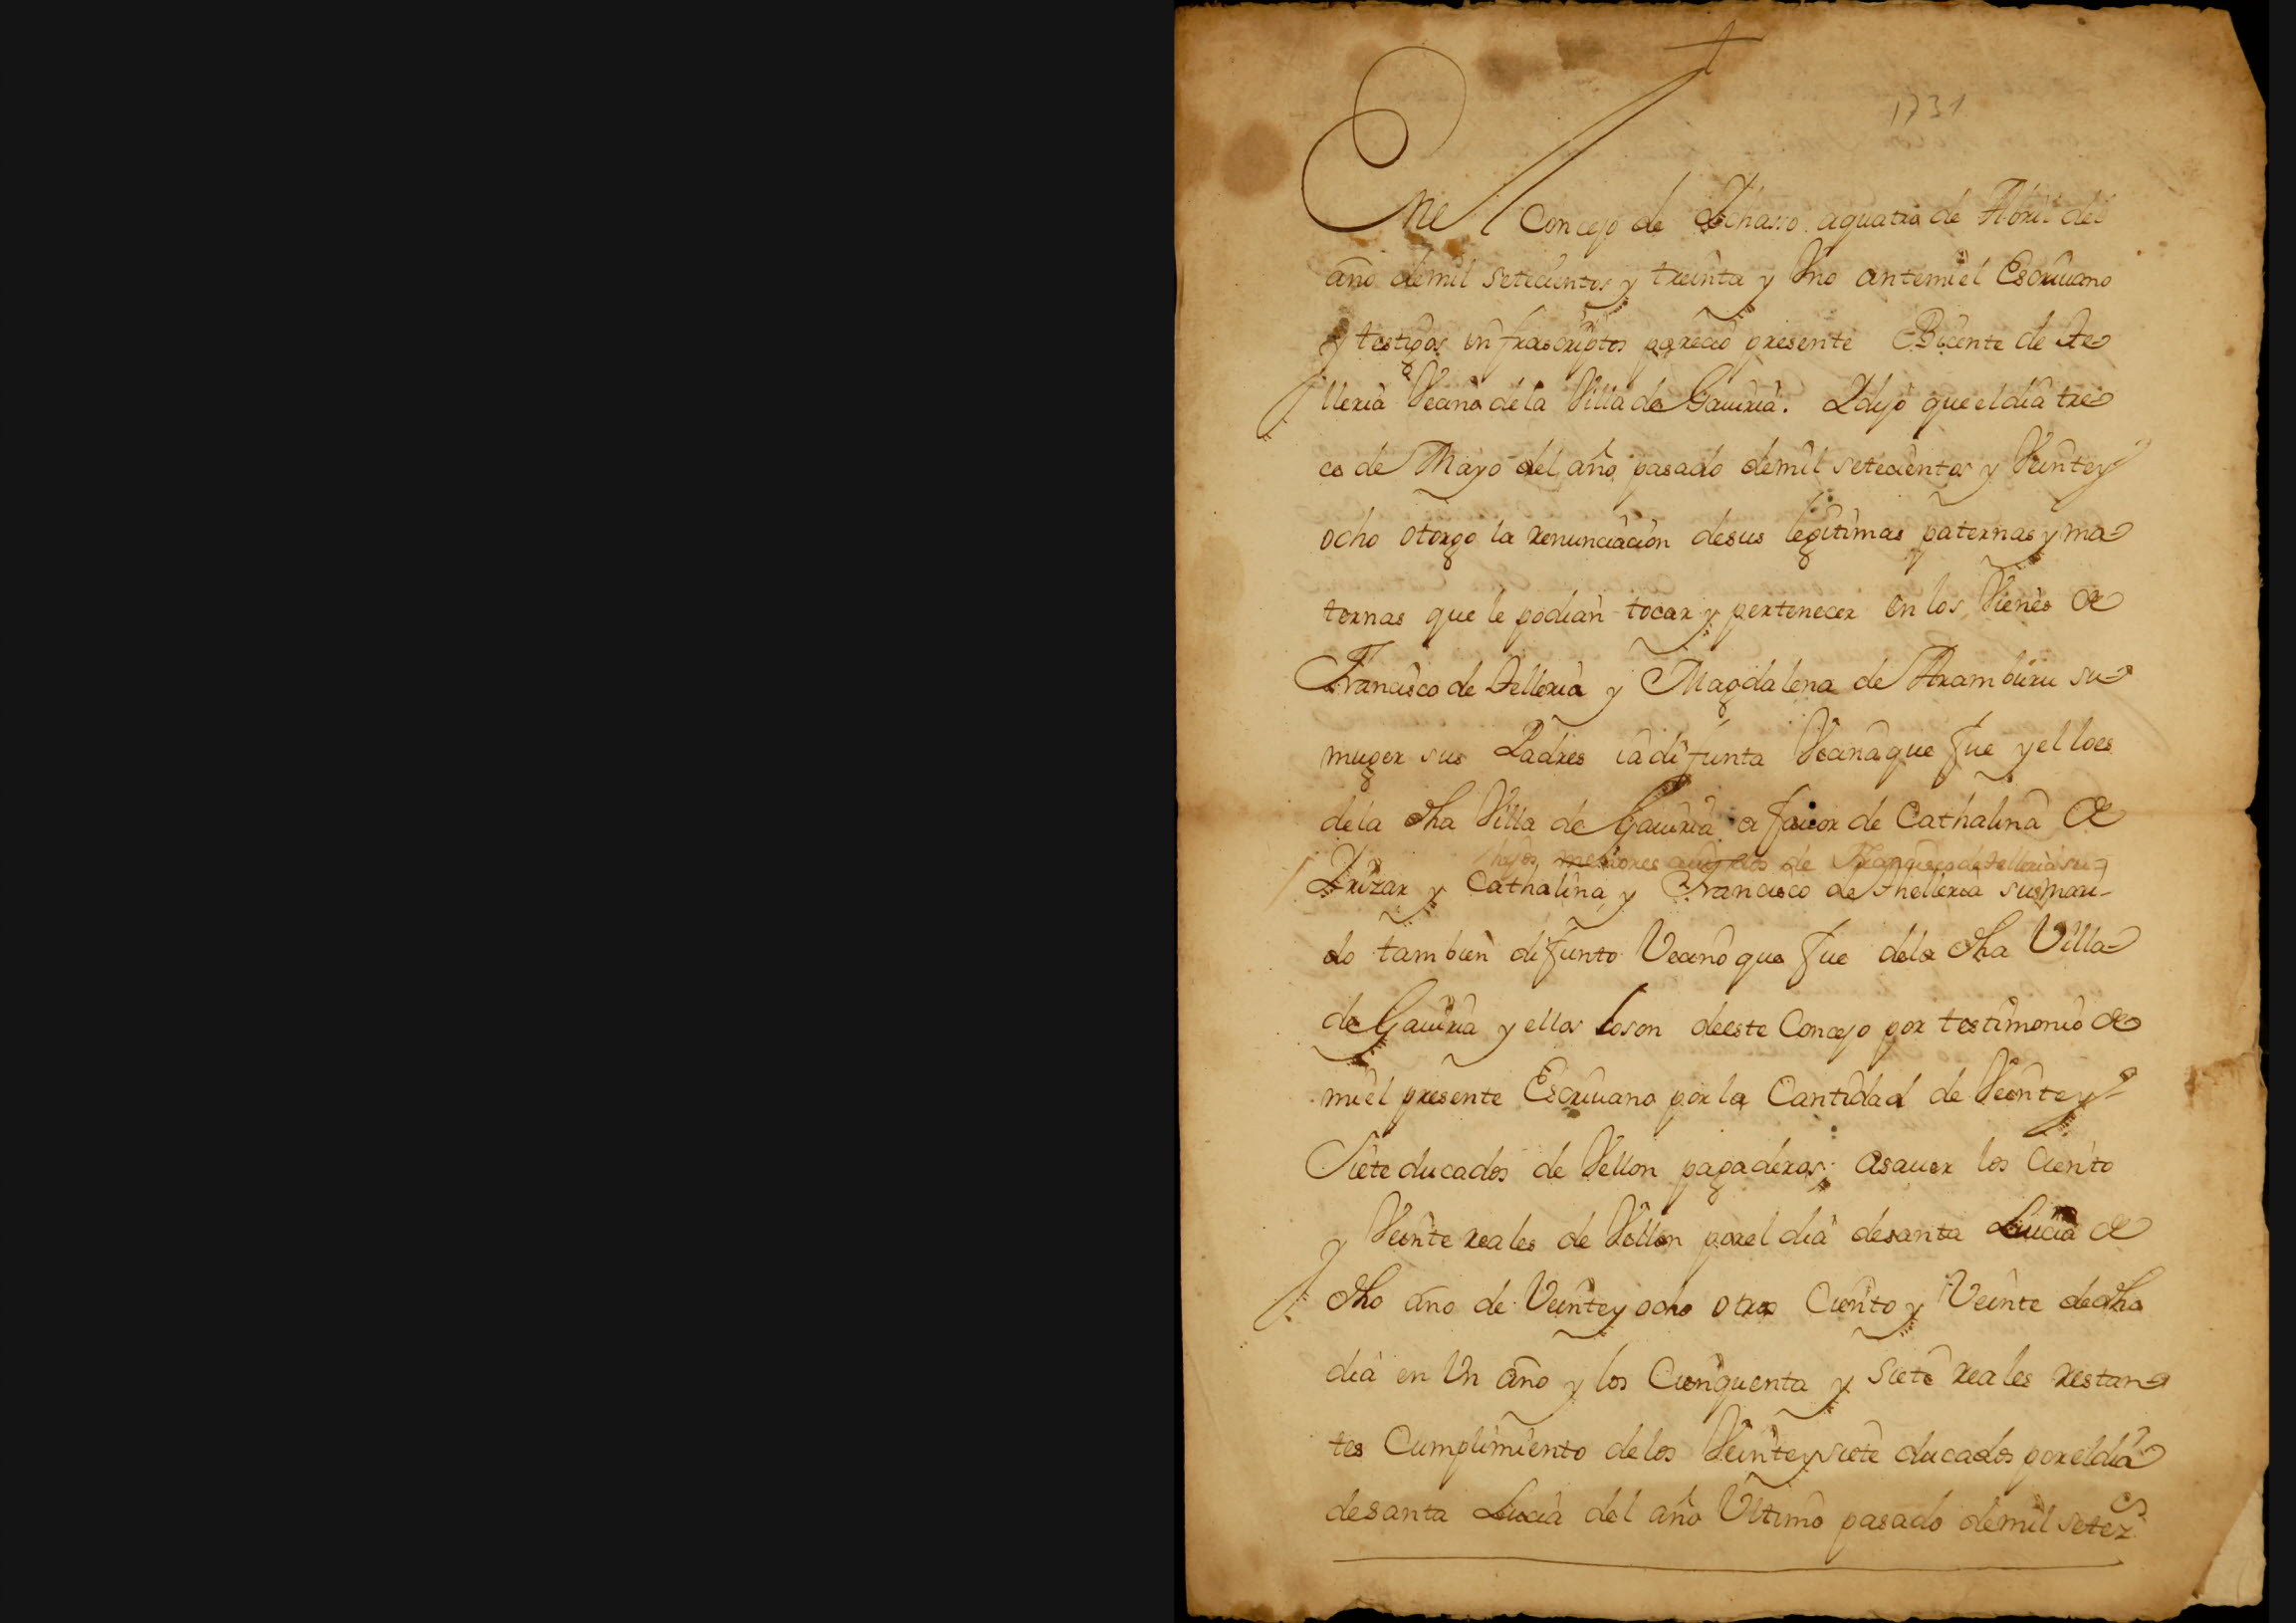 1731
En el Concejo de Ychaso aquatro de Abril del
año demil setecientos y treinta y Uno antemi el Escriuano
y testigos infrascriptos parecio presente Bicente de Te
lleria Vecino dela Villa de Gauiria. Y dijo que el dia tre
ce de Mayo del año pasado demil setecientos y Veintey
ocho otorgo la renunciacion desus legitimas paternas y ma
ternas que le podian tocar y pertenecer en los Vienes de
Francisco de Telleria y Magdalena de Aramburu su
muger sus Padres ia difunta Vecina que fue y el loes
dela dha Villa de Gauiria a fauor de Cathalina de
hijos menores de Francisco de Telleria su
Yrizar y Cathalina y Francisco de Thelleria sus mari-
do tambien difunto Vecino que fue dela dha Villa
de Gauiria y ellos loson deeste Concejo por testimonio de
mi el presente Escriuano por la Cantidad de Veinte y
Siete ducados de Vellon pagaderos; asauer los Ciento
y Veinte reales de Vellon por el dia desanta Lucia de
dho año de Veinte y ocho otros Ciento y Veinte de dho
dia en Un año y los Cinquenta y siete reales restan
tes Cumplimiento delos Veinte y siete ducados por el dia
desanta Lucia del año Ultimo pasado demil setez